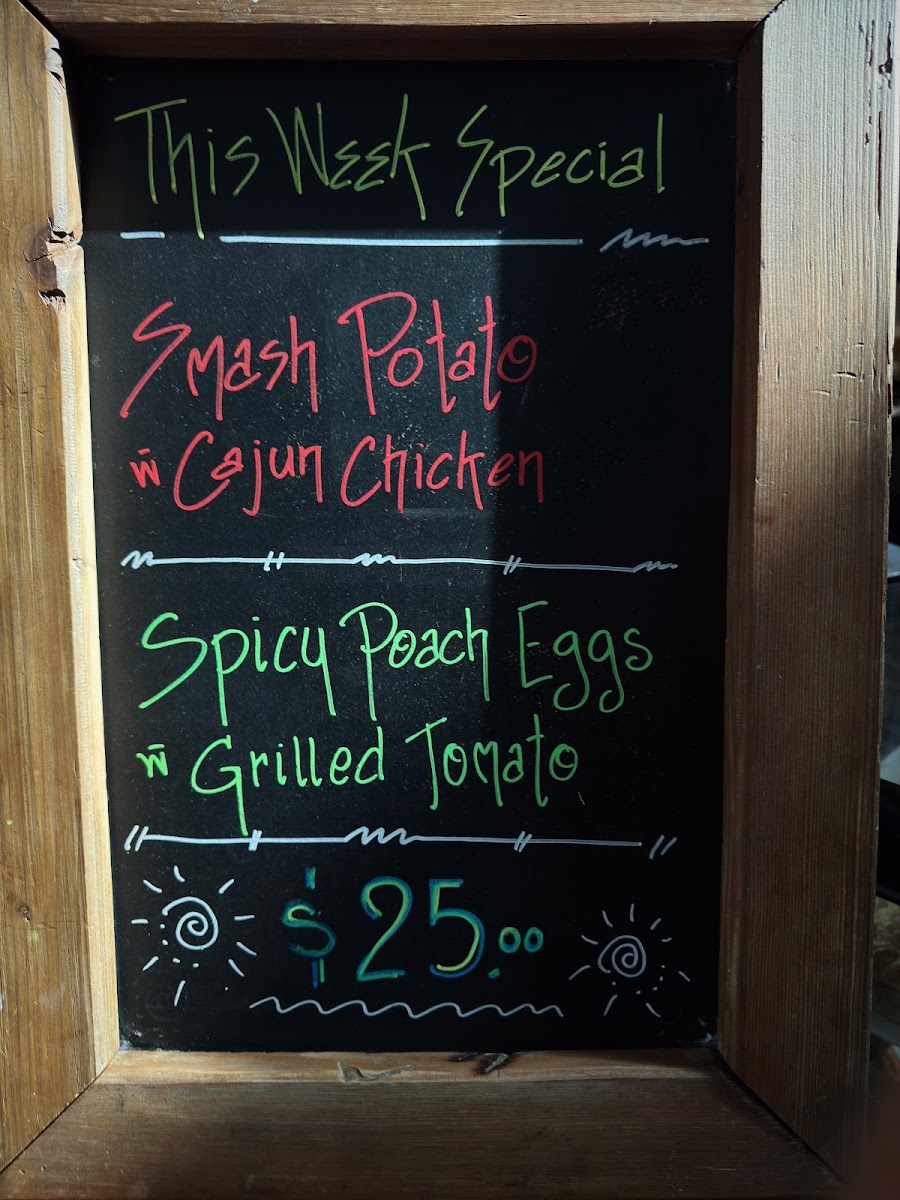 This Week Special
Smash Potato
w Cajun Chicken
Spicy Poach Eggs
w Grilled Tomato
$25.00